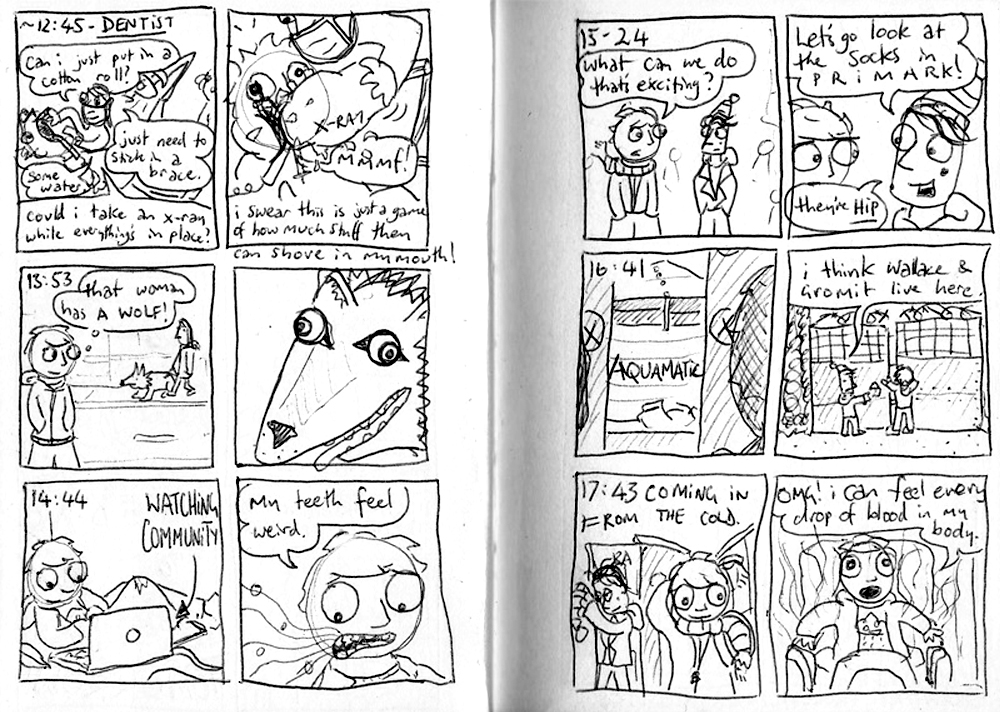 ~12:45 - DENTIST
Can i just put in a
cotton roll?
just need to
stick in a
brace.
Some
water
could i take an x-ray
while everything's in place?
X-RAY
MMMf!
i swear this is just a game
of how much stuff then
can shove in my mouth!
13:53
that woman
has A WOLF!
14:44
WATCHING
COMMUNITY
My teeth feel
weird.
15-24
What can we do
that's exciting?
Let's go look at
the socks in
PRiMARK!
they're HIP
16:41
AQUAMATIC
i think Wallace &
Gromit live here.
17:43 COMING IN
FROM THE COLD.
OMG! i can feel every
drop of blood in my
body.